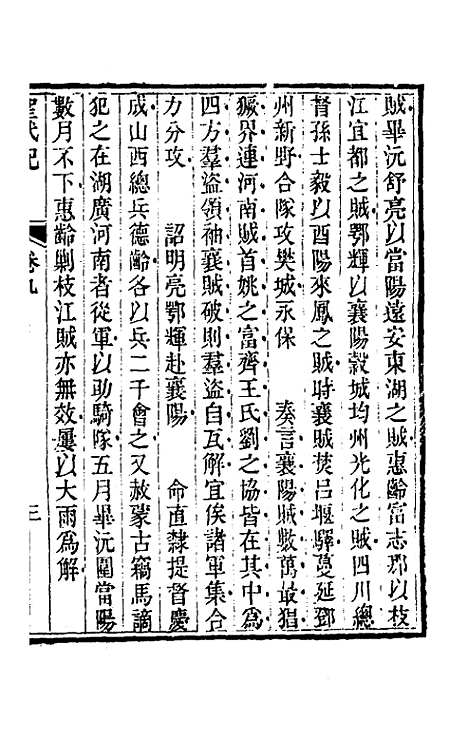 賊畢沅舒亮以當陽遠安東湖之賊惠齡富志那以枝
江宜都之賊鄂輝以襄陽穀城均州光化之賊四川總
督孫士毅以酉陽來鳳之賊時襄賊焚呂堰驛蔓延鄧
州新野合隊攻樊城永保　奏言襄陽賊數萬最猖
獗界連河南賊首姚之富齊王氏劉之協皆在其中為
四方羣盜領袖襄賊破則羣盜自瓦解宜俟諸軍集合
力分攻　詔明亮鄂輝赴襄陽　命直隸提督慶
成山西總兵德齡各以兵二千會之又赦蒙古竊馬謫
犯之在湖廣河南者從軍以助騎隊五月畢沅圍當陽
數月不下惠齡剿枝江賊亦無效屢以大雨為解
聖武記　卷九　三